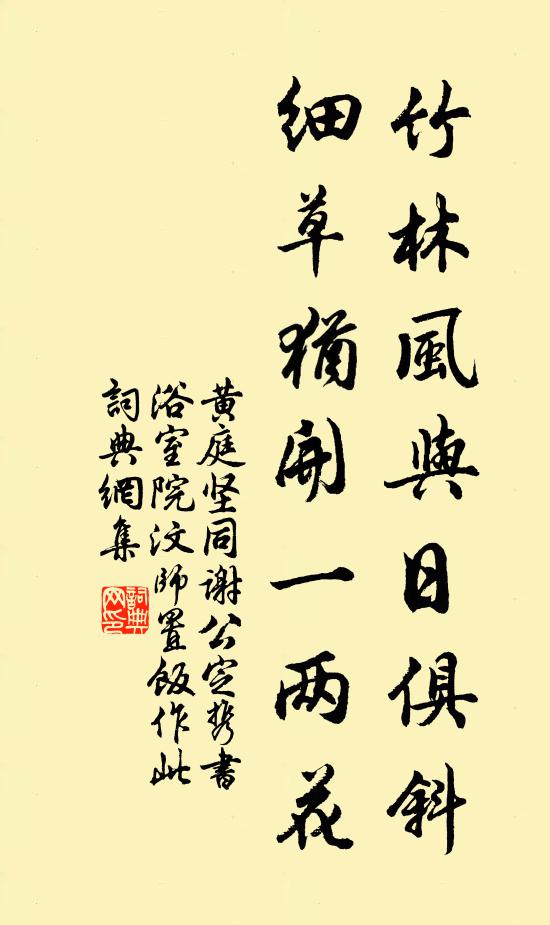 竹林風與日俱斜
細草猶開一兩花
黄庭坚同謝公定攜書
浴室院汶師置飯作此
詞典網集
詞典网印